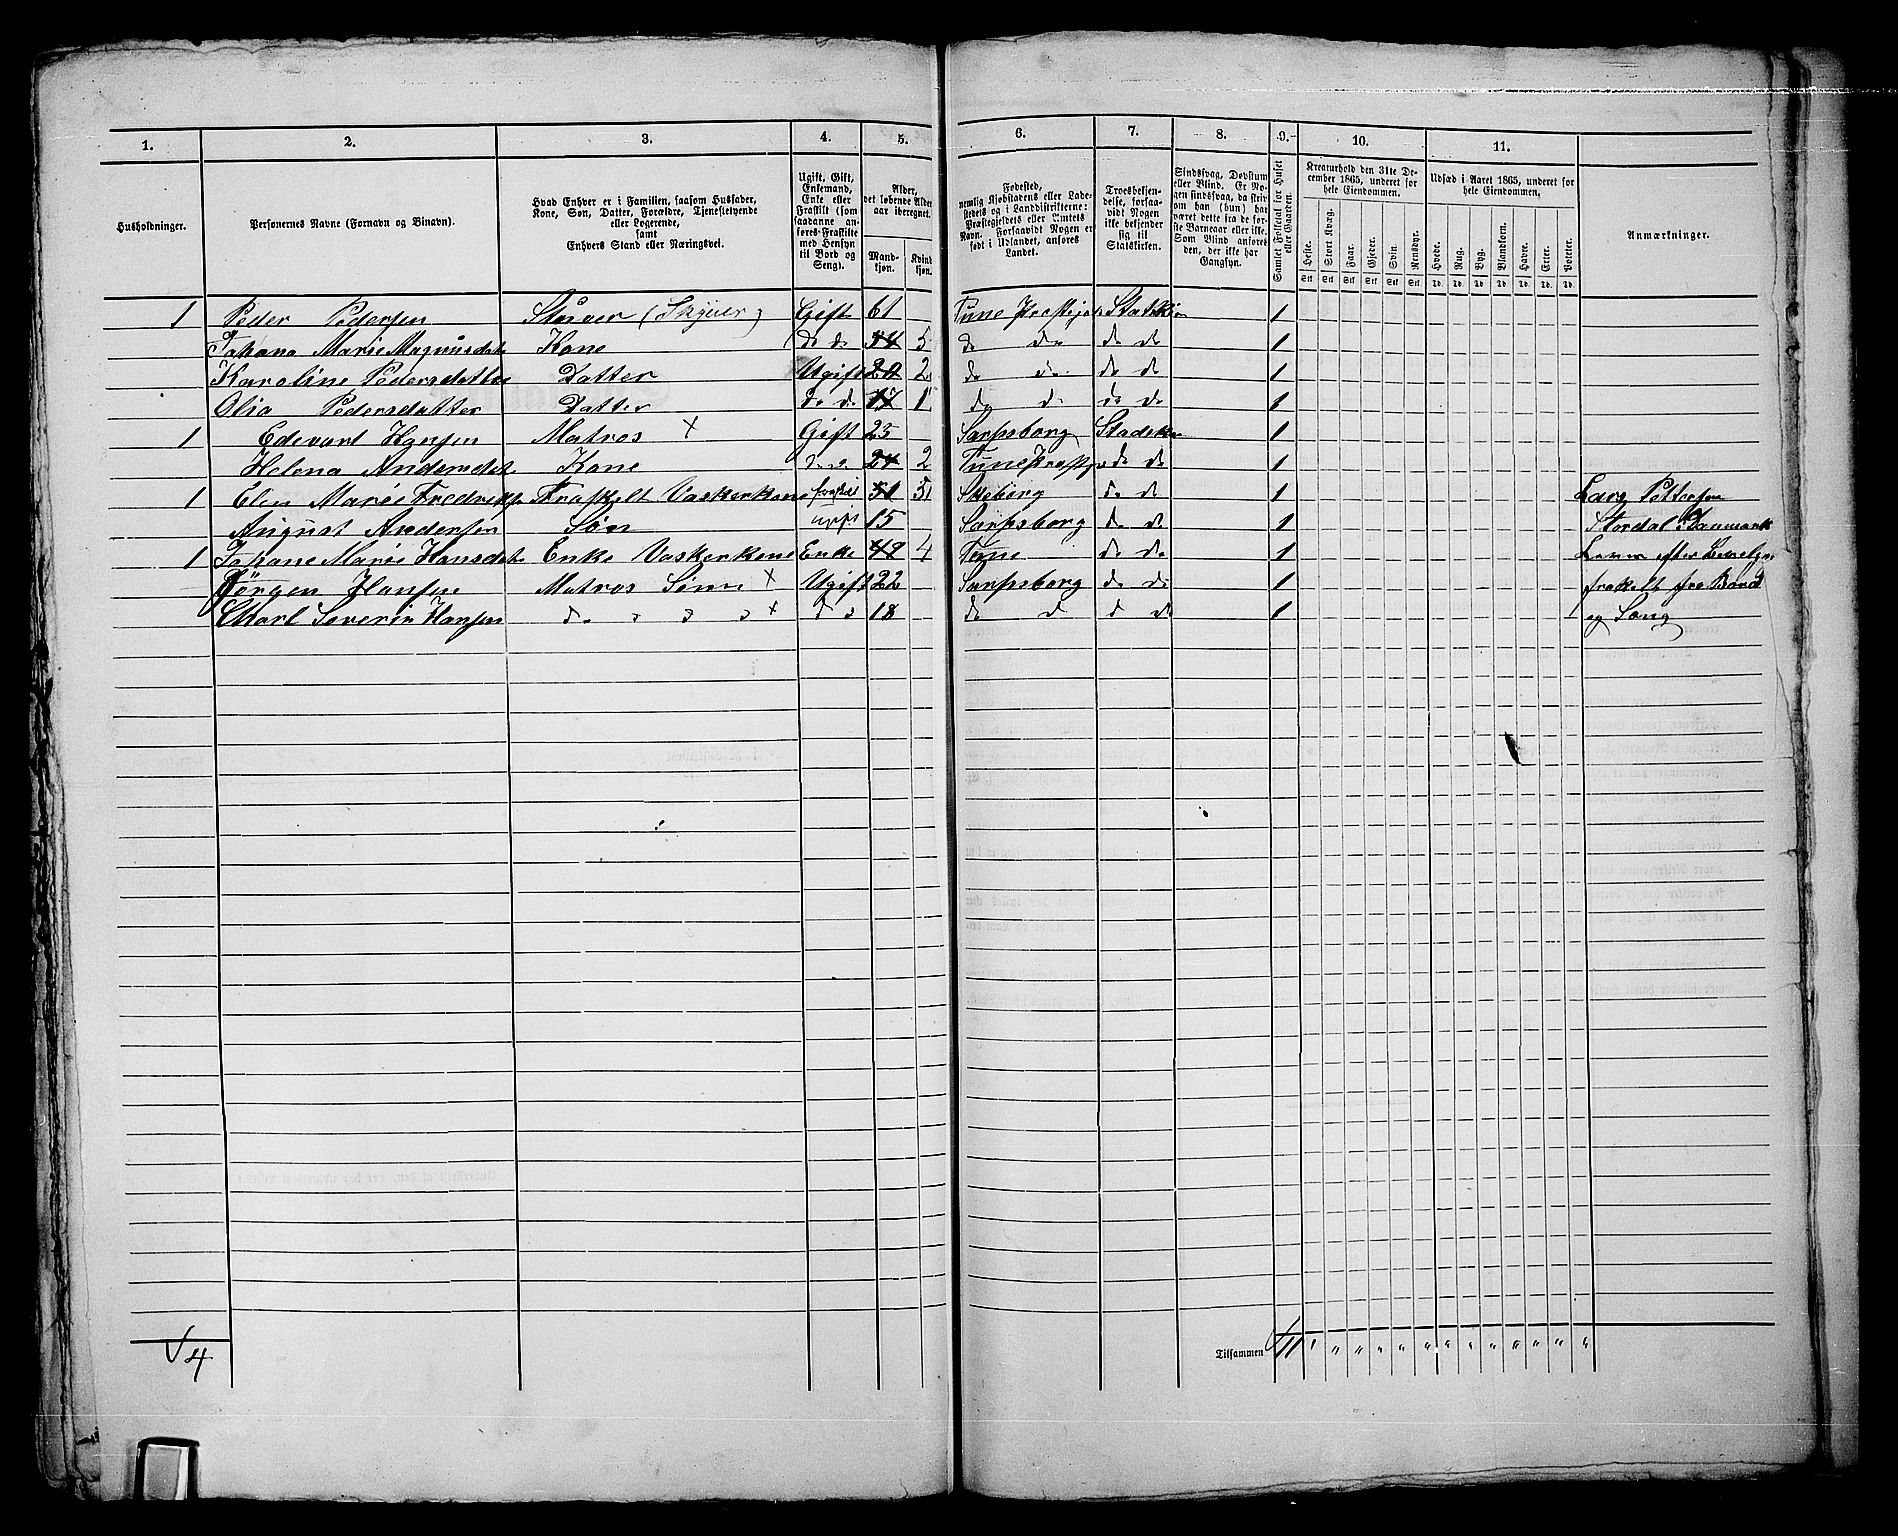 1. 2. 3. 4. 5. 6. 7. 8. 9. 10. 11.
Husholdninger.
Personernes Navne (Fornavn og Binavn).
Hvad Enhver er i Familien, saasom Husfader,
Kone, Søn, Datter, Forældre, Tjenestetyende
eller Logerende,
samt
Enhvers Stand eller Næringsvei.
Ugift, Gift,
Enkemand,
Enke eller
Fraskilt (som
saadanne an-
føres Fraskilte
med Hensyn
til Bord og
Seng).
Alder,
det løbende Alders-
aar iberegnet.
Mand-
kjøn.
Kvind
kjøn.
Fødested,
nemlig Kjøbstadens eller Lade-
stedets og i Landdistrikterne:
Præstegjeldets eller Amtets
Navn. Forsaavidt Nogen er
født i Udlandet, anføres
Landet.
Troesbekjen-
delse, forsaa-
vidt Nogen
ikke bekjender
sig til
Statskirken.
Sindssvag, Døvstum
eller Blind. Er No-
gen sindssvag, da skriv
om han (hun) har
været dette fra de før-
ste Barneaar eller ikke.
Som Blind anføres
den, der ikke har
Gangsyn.
Samlet Folketal for Huset
eller Gaarden.
Kreaturhold den 31te De-
cember 1865, underet for
hele Eiendommen.
Heste. Stort Kvæg. Faar. Gjeder. Svin. Rensdyr.
Stk. Stk. Stk. Stk. Stk. Stk.
Udsæd i Aaret 1865, underet for
hele Eiendommen.
Hvede. Rug. Byg. Blandkorn. Havre. Erter. Poteter.
Td. Td. Td. Td. Td. Td. Td.
Anmærkninger.
1 Peder Pedersen Stuver (Skyver) Gift 61 Tune Statski 1
Johana Marie Magnusdat Kone do do 54 5 do do do do 1
Karoline Pedersdatter Datter Ugift 20 2 do do do do 1
Olia Pedersdatter Datter do do 17 1 do do do do 1
1 Edevart Hansen Matros x Gift 23 Sarpsborg Stadski 1
Helena Andersdat Kone do do 24 2 Tune do do 1
1 Elen Marie Fredriks Fraskelt Vaskerkone fraskilt 51 5 Skeberg do do 1 Lars Pettersen
August Andersen Søn ugift 15 Sarpsborg do do 1 Stordal i Danmark
1 Johane Marie Hansdat Enke Vaskerkone Enke 49 4 Tune do do 1 efter
Jørgen Hansen Matros Sønn x Ugift 22 Sarpsborg do do 1 fraskelt fra Bord
Karl Severin Hansen do x do 18 do do do do 1 og Sæng
4
Tilsammen 11 " " " " " " " " " " " " "